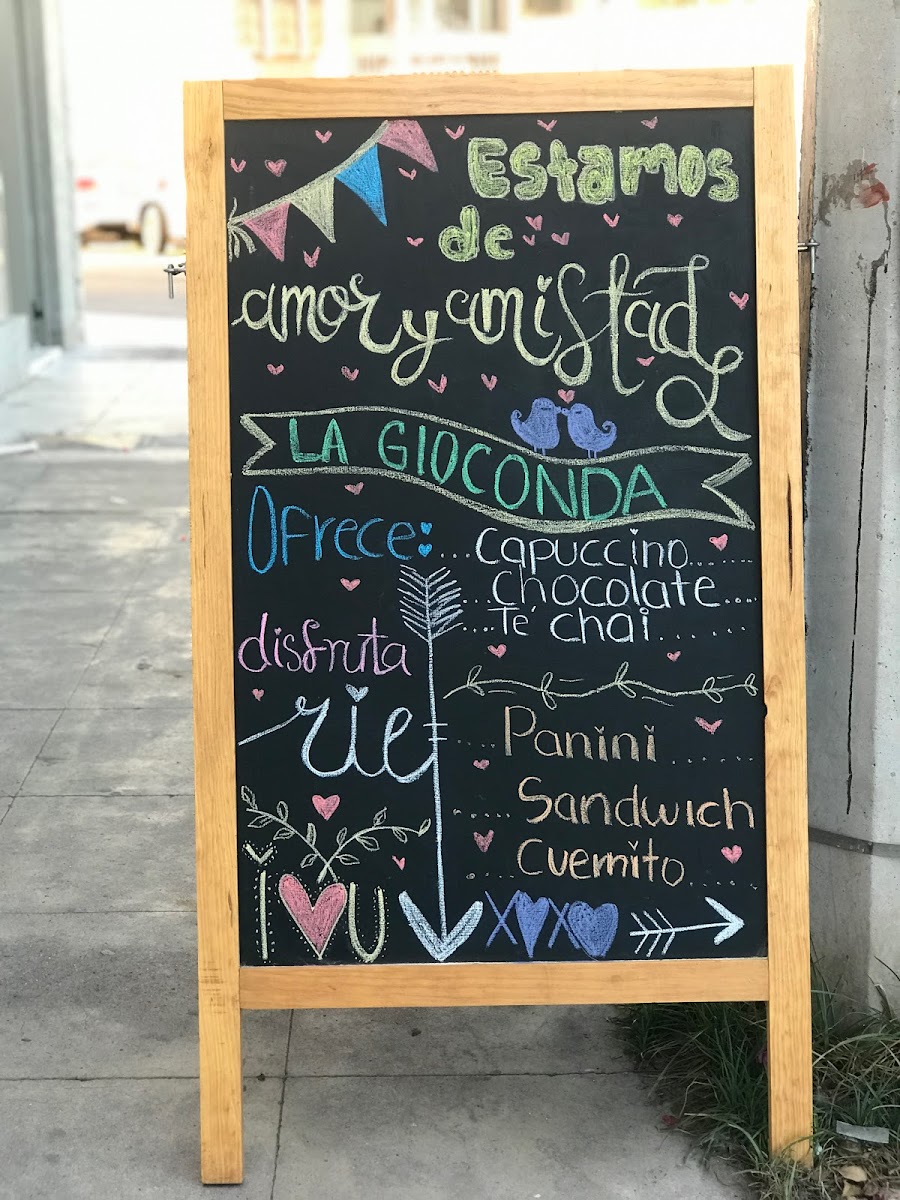 Estamos
de
amor y amistad
LA GIOCONDA
Ofrece: ... Capuccino......
... Chocolate....
.... Té chai.......
disfruta
rie
..... Panini.......
..... Sandwich
..... Cuernito......
I ♥ U X♥X♥